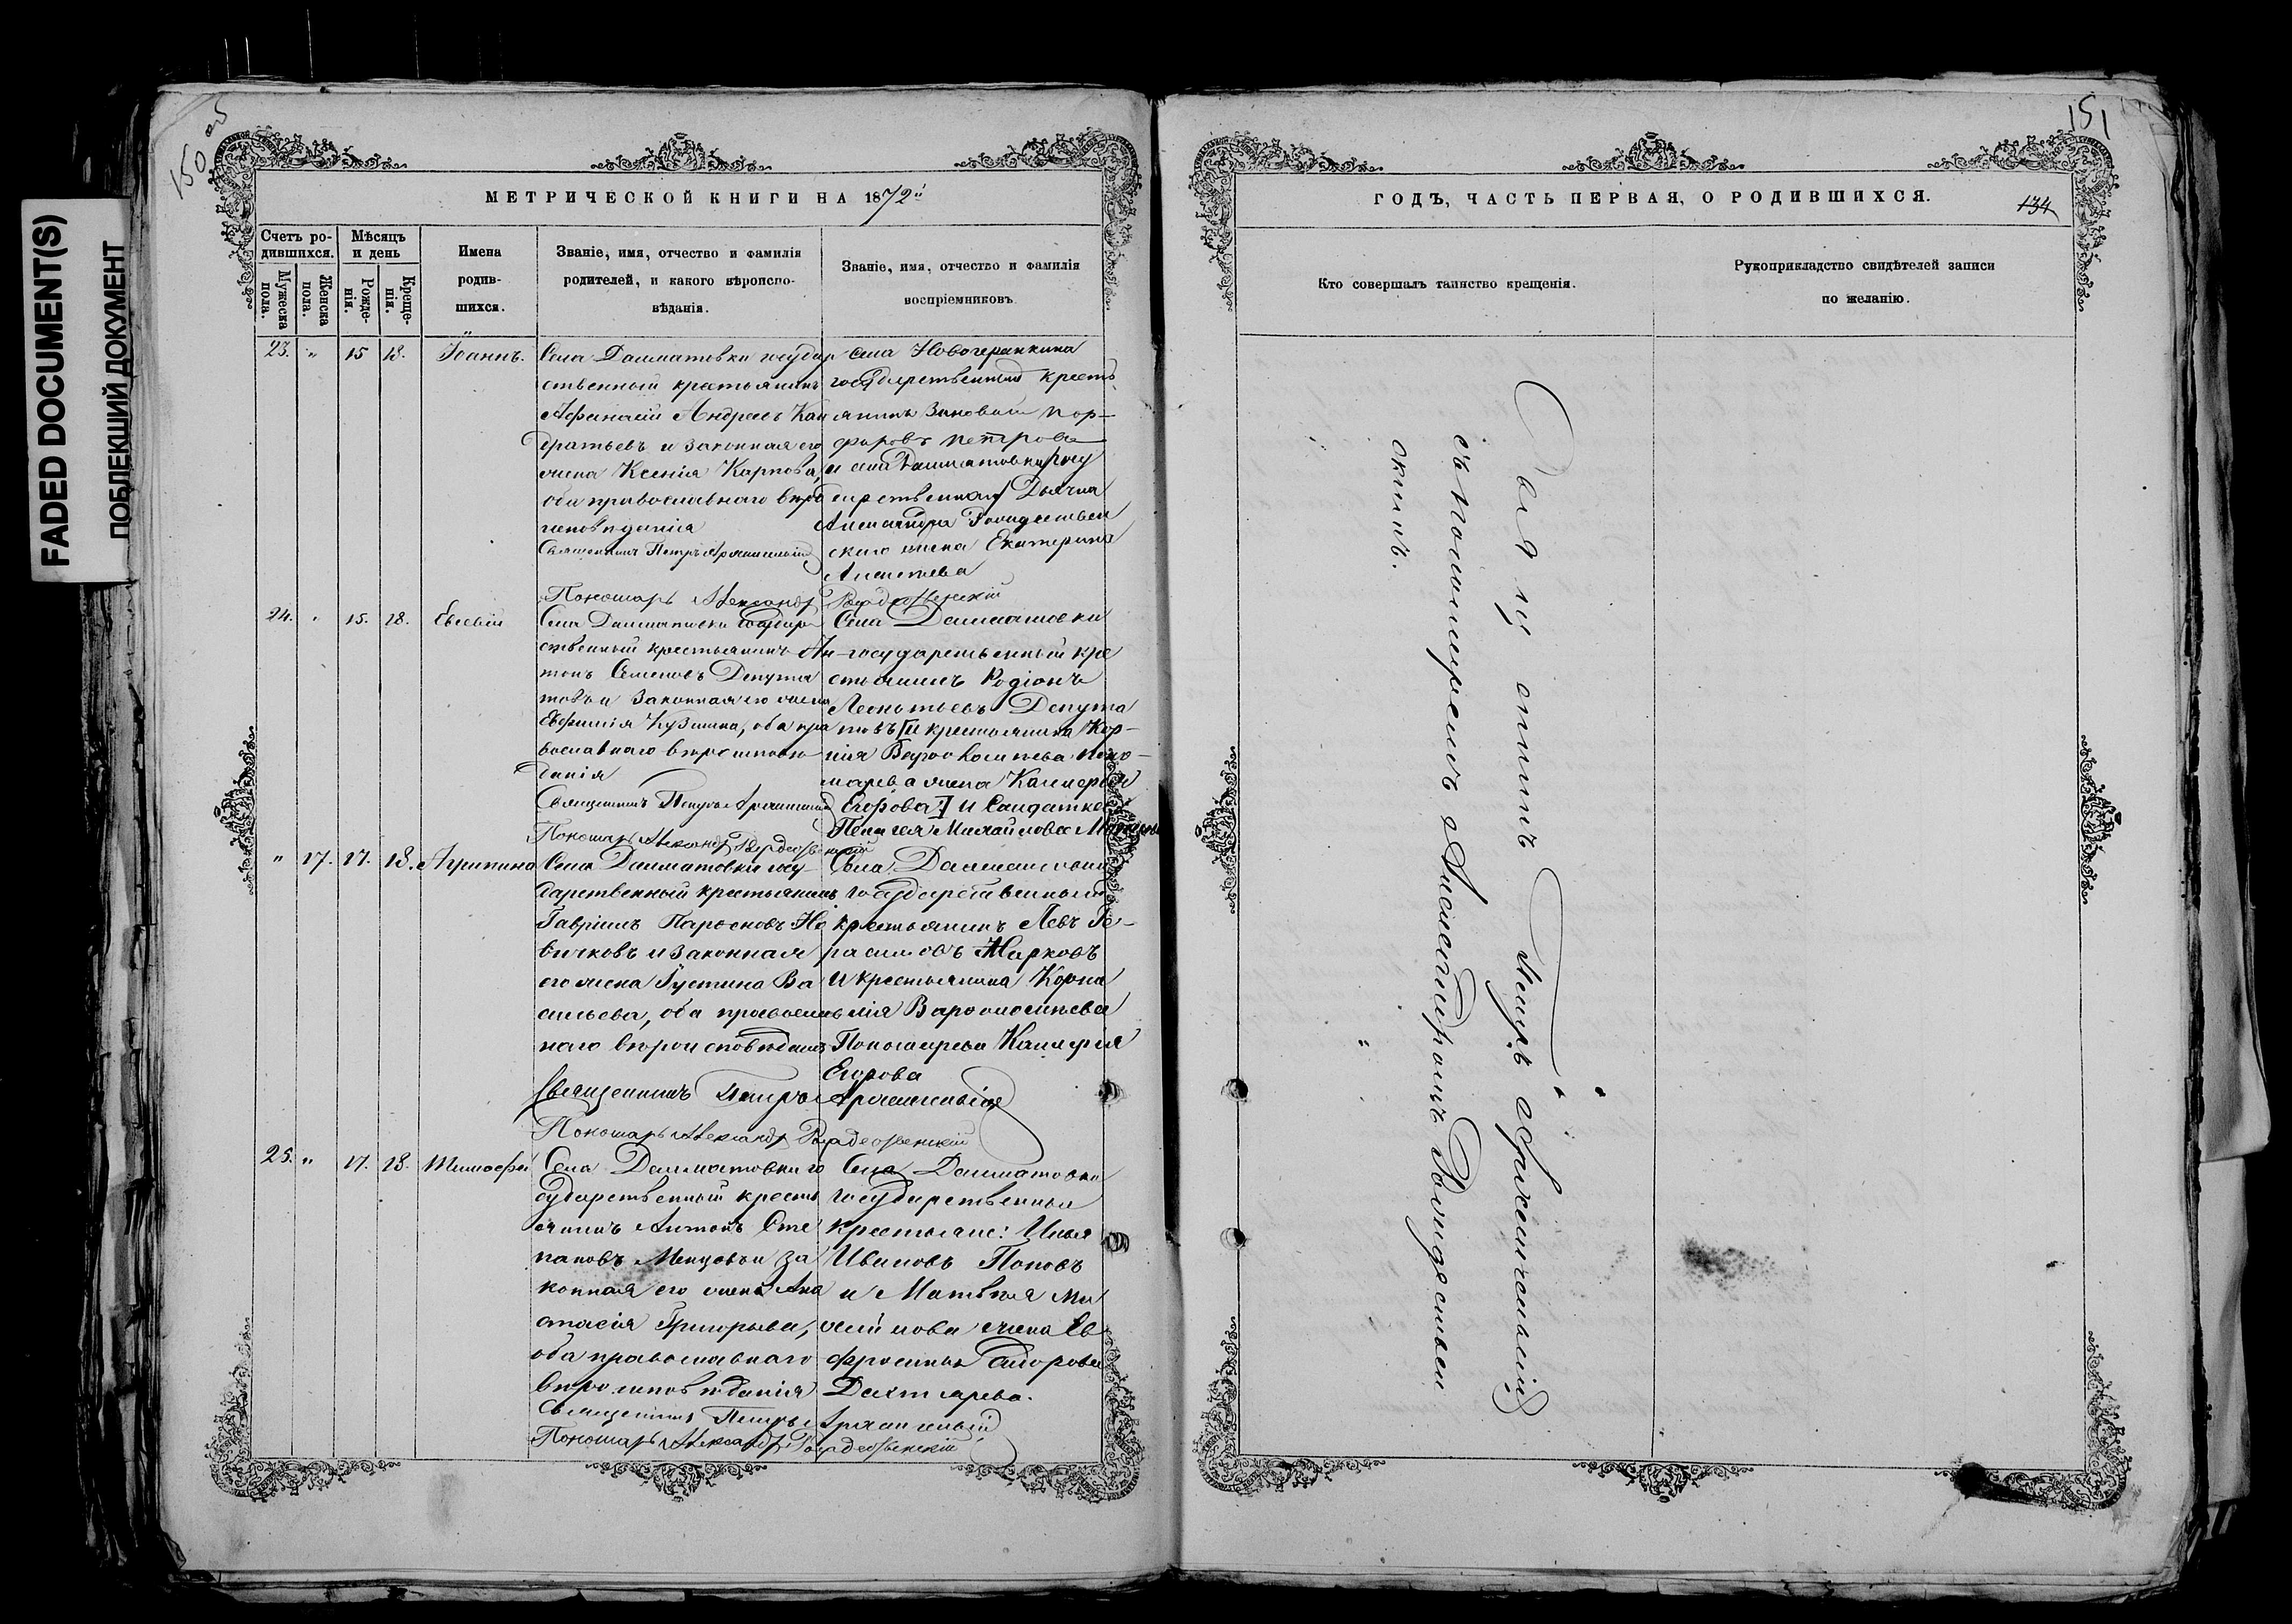 FADED DOCUMENT(S)
ПОБЛЕКШИЙ ДОКУМЕНТ
150 об
МЕТРИЧЕСКОЙ КНИГИ НА 1872й
Счетъ ро-
дившихся.
Мужеска
пола.
Женска
пола.
Мѣсяцъ
и день
Рожде-
нія.
Креще-
нія.
Имена
родив-
шихся.
Званіе, имя, отчество и фамилія
родителей, и какого вѣроиспо-
вѣданія.
Званіе, имя, отчество и фамилія
воспріемниковъ
23. " 15 18. Іоаннъ.
Села Далматовки государ
ственный крестьянинъ
Афанасій Андреевъ Кон
дратьевъ и законная его
жена Ксенія Карпова,
оба православнаго вѣро
исповѣданія
Священникъ Петръ Архангельскій
Пономарь Александръ Рождественскій
села
государственный кресть
янинъ Зиновій Пор-
фировъ Петровъ
и села Далматовки госу
дарственная Дьячка
Александра Рождествен
скаго жена Екатерина
24. " 15. 18. Евсевій
Села Далматовки государ
ственный крестьянинъ Ан-
тонъ Семеновъ Депута
товъ и законная его жена
Евфимія Кузмина, оба пра
вославнаго вѣроисповѣ
данія
Священникъ Петръ Архангельскій
Пономарь Александръ Рождественскій
Села Далматовки
государственный кре
стьянинъ Родіонъ
Леонтьевъ Депута
товъ [и крестьянина Кор-
нилія Варфоломеева Поно-
марева жена Калерія
Егорова] и Солдатка
Пелагея Михайлова
" 17. 17. 18. Агрипина
Села Далматовки госу-
дарственный крестьянинъ
Гавріилъ Парѳеновъ Но
виковъ и законная
его жена Іустина Ва
сильева, оба православ
наго вѣроисповѣданія
Священникъ Петръ Архангельскій
Пономарь Александръ Рождественскій
Села Далматовки
государственный
крестьянинъ Левъ Ге-
расимовъ Жарковъ
и крестьянина Корни
лія Варфоломеева
Пономарева Калерія
Егорова
25. " 17. 18. Тимофей
Села Далматовки го
сударственный кресть
янинъ Антонъ Сте
пановъ и за
конная его жена Ана
стасія Григорьева,
оба православнаго
вѣроисповѣданія
Священникъ Петръ Архангельскій
Пономарь Александръ Рождественскій
Села Далматовки
государственные
крестьяне: Илья
Ивановъ Поповъ
и Матвѣя Ми
хайлова жена Ев
фросинья Сидорова
Дехтярева.
151
ГОДЪ, ЧАСТЬ ПЕРВАЯ, О РОДИВШИХСЯ.
134
Кто совершалъ таинство крещенія.
Рукоприкладство свидѣтелей записи
по желанію.
Священникъ Петръ Архангельскій
съ пономаремъ Александромъ Рождествен
скимъ.